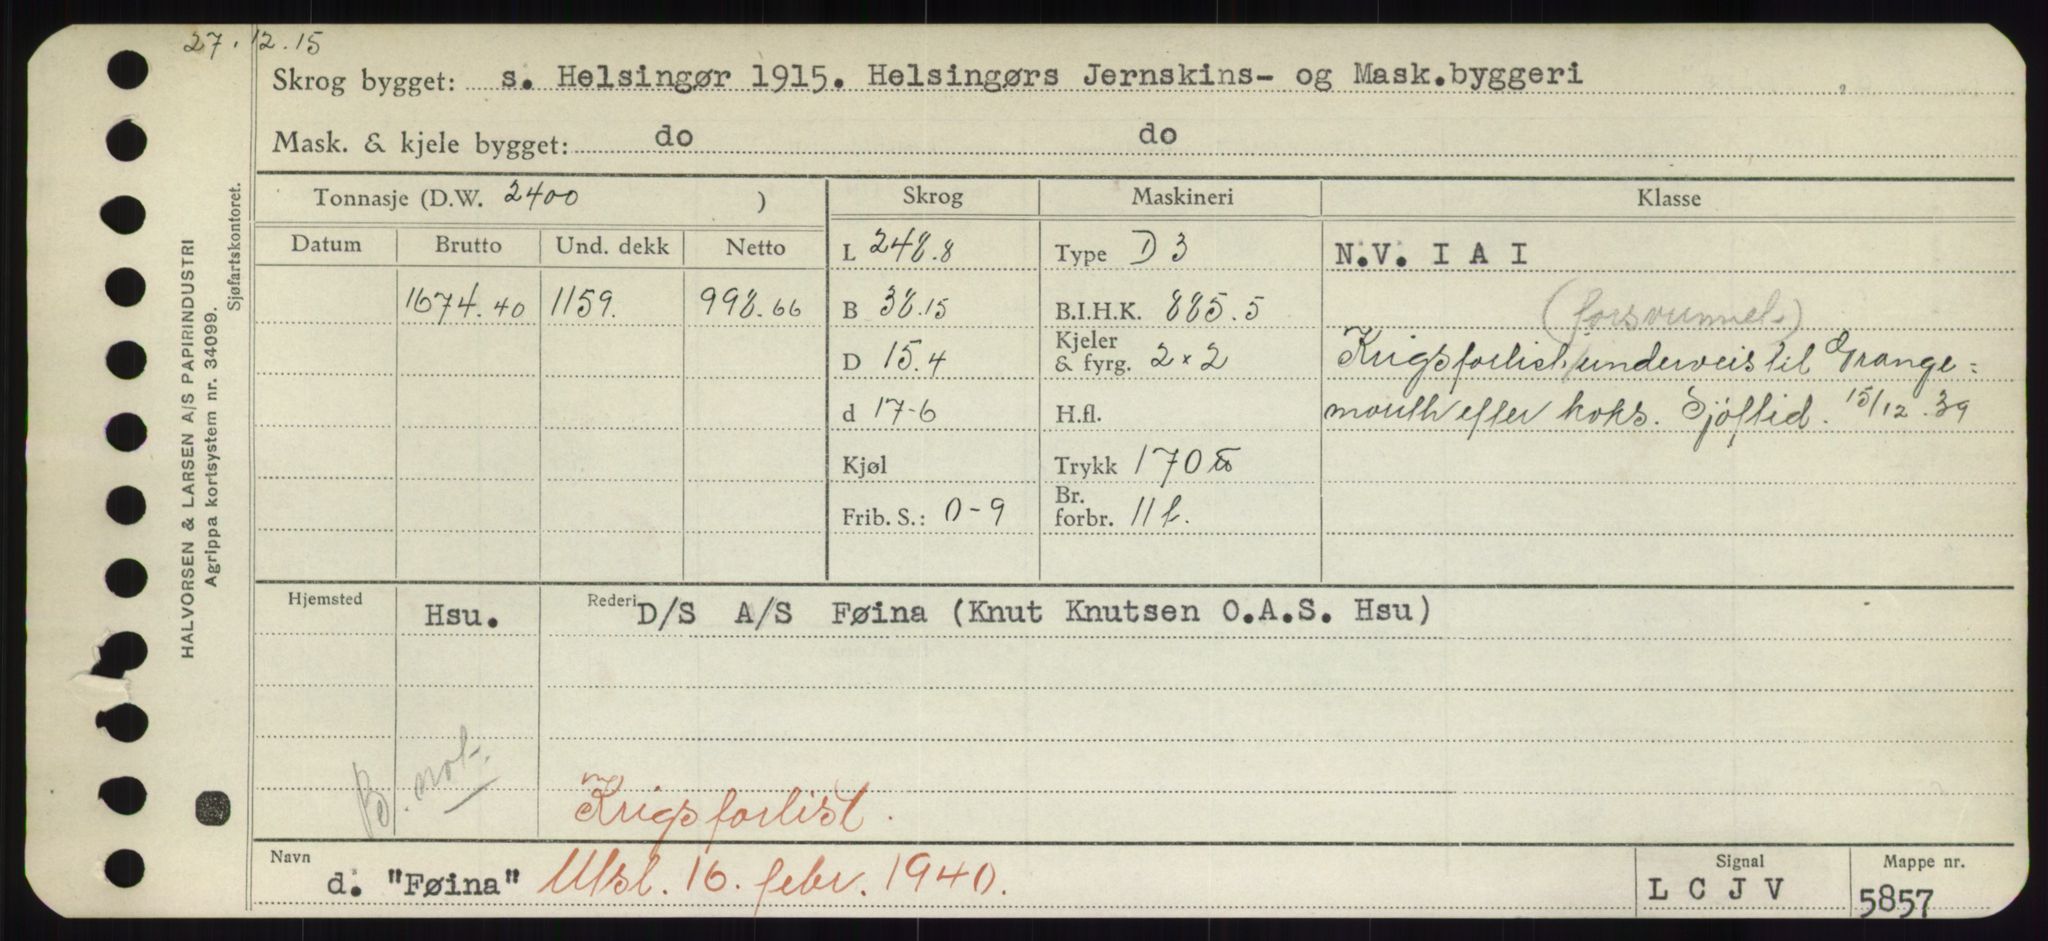 27.12.15
Skrog bygget: s. Helsingør 1915. Helsingørs Jernskins- og Mask.byggeri
Mask. & kjele bygget: do do
Tonnasje (D.W. 2400 ) Skrog Maskineri Klasse
Datum Brutto Und. dekk Netto L 248.8 Type D 3 N.V. I A I
1674.40 1159. 998.66 B 38.15 B.I.H.K. 885.5 (forsvunnet.)
D 15.4 Kjeler & fyrg. 2 x 2 Krigsforlist, underveis til Grange=
d 17-6 H.fl. mouth efter koks. Sjøftid. 15/12.39
Kjøl Trykk 170 ℔
Frib. S.: 0-9 Br. forbr. 11 t.
Hjemsted Hsu. Rederi D/S A/S Føina (Knut Knutsen O.A.S. Hsu)
B. not.
Krigsforlist.
Navn d. "Føina" Utsl. 16. febr. 1940. Signal L C J V Mappe nr. 5857
HALVORSEN & LARSEN A/S PAPIRINDUSTRI
Agrippa kortsystem nr. 34099.
Sjøfartskontoret.